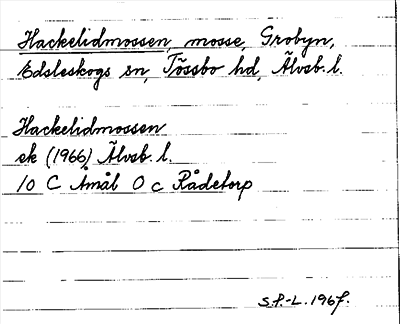 Hackelidmossen, mosse, Grobyn,
Edsleskogs sn, Tössbo hd, Älvsb. l.
Hackelidmossen
ek (1966) Älvsb. l.
10 C Åmål 0 c Rådetorp
S.P.-L. 1967.